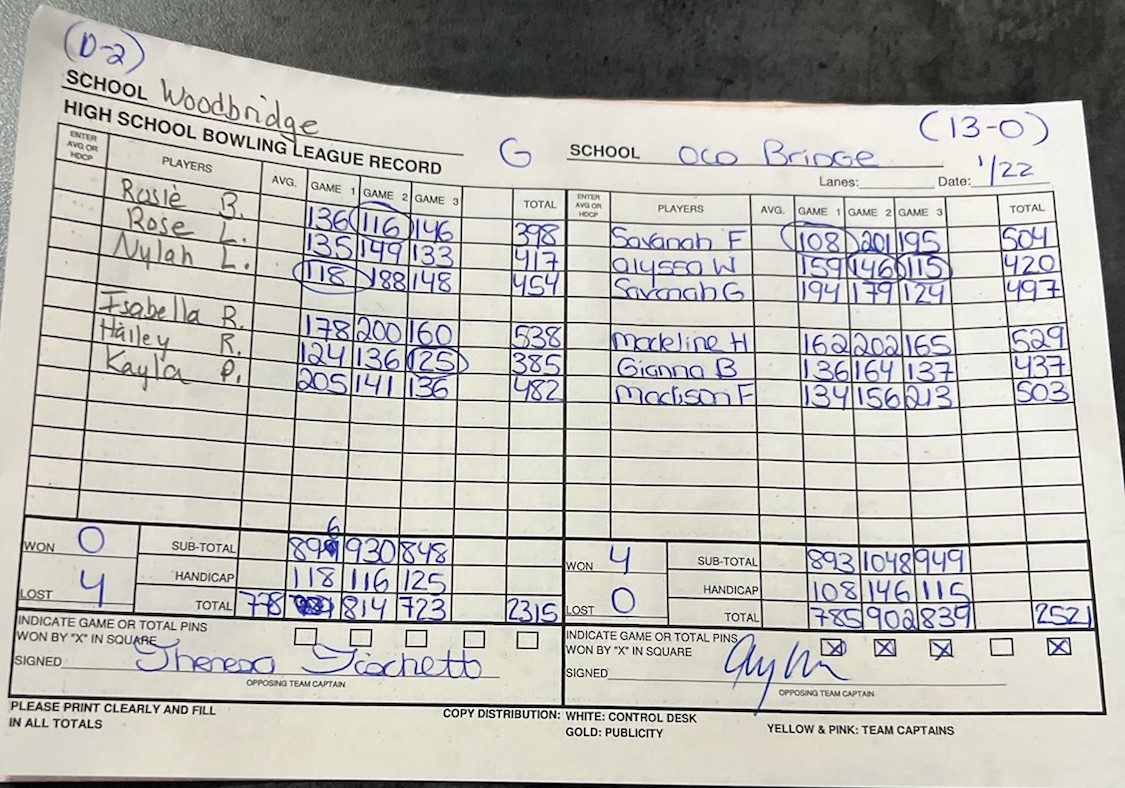 (D-2)
SCHOOL Woodbridge
HIGH SCHOOL BOWLING LEAGUE RECORD
G
(13-0)
SCHOOL OLD Bridge
Lanes: Date: 1/22
ENTER AVG OR HDCP PLAYERS AVG. GAME 1 GAME 2 GAME 3 TOTAL
Rosie B. 136 116 146 398
Rose L. 135 149 133 417
Nylah L. 118 188 148 454
Isabella R. 178 200 160 538
Hailey R. 124 136 125 385
Kayla P. 205 141 136 482
WON 0 SUB-TOTAL 896 930 848
HANDICAP 118 116 125
LOST 4 TOTAL 778 814 723 2315
INDICATE GAME OR TOTAL PINS
WON BY "X" IN SQUARE
SIGNED Theresa
OPPOSING TEAM CAPTAIN
ENTER AVG OR HDCP PLAYERS AVG. GAME 1 GAME 2 GAME 3 TOTAL
Savanah F 108 201 195 504
Alyssa W 159 146 115 420
Savanah G 194 179 124 497
Madeline H 162 202 165 529
Gianna B 136 164 137 437
Madison F 134 156 213 503
WON 4 SUB-TOTAL 893 1048 949
HANDICAP 108 146 115
LOST 0 TOTAL 785 902 839 2521
INDICATE GAME OR TOTAL PINS
WON BY "X" IN SQUARE X X X X
SIGNED
OPPOSING TEAM CAPTAIN
PLEASE PRINT CLEARLY AND FILL
IN ALL TOTALS
COPY DISTRIBUTION: WHITE: CONTROL DESK
GOLD: PUBLICITY
YELLOW & PINK: TEAM CAPTAINS